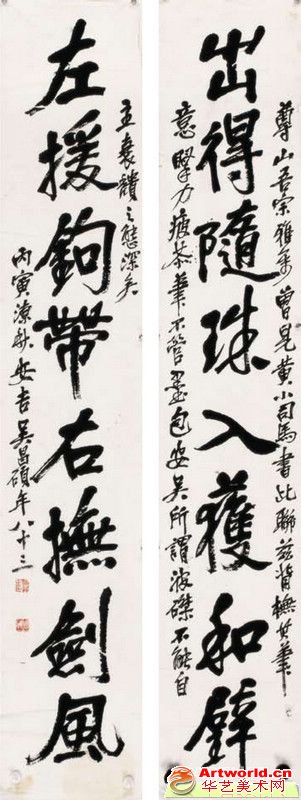 尊山吾宗雅屬曾見黃小司馬書此聯茲背橅其筆
出得隨珠入獲和璧
意力疲苶筆不管墨包安吳所謂波磔不能自
立衰隤之態深矣
左援鉤帶右撫劍風
丙寅涼秋安吉吳昌碩年八十三
Artworld.cn
华艺美术网